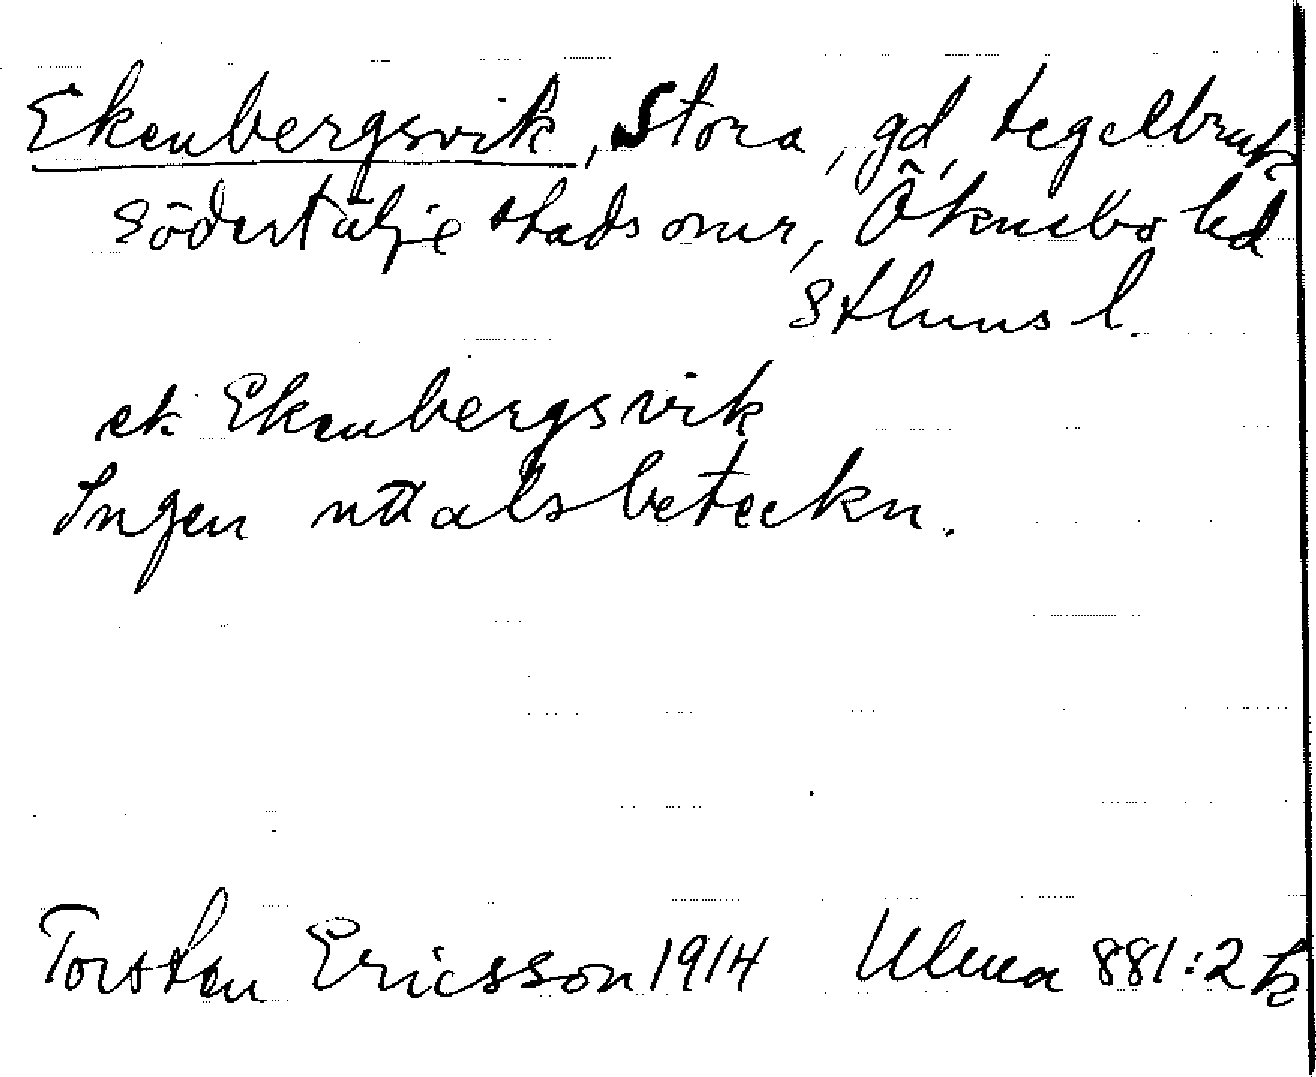 Ekenbergsvik, Stora, gd, tegelbruk
Södertälje stadsomr, Öknebo hd
Sthms l.
ek Ekenbergsvik
Ingen uttalsbeteckn.
Torsten Ericsson 1914 Ulma 881:2 k